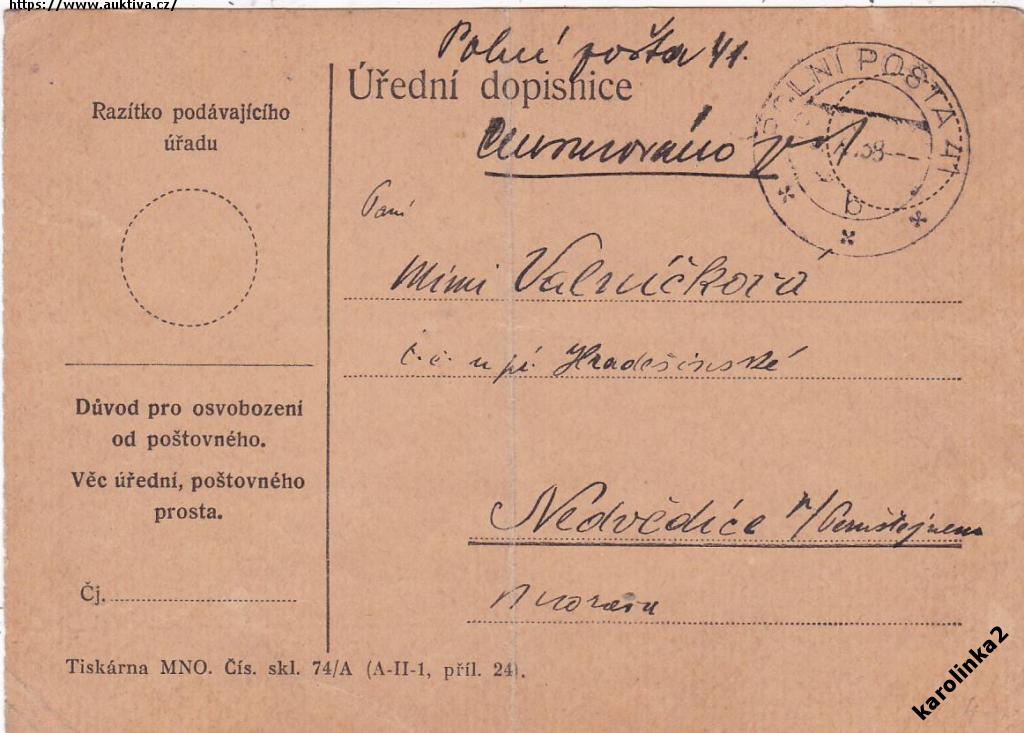 https://www.auktiva.cz/
Polní pošta 41.
Úřední dopisnice
Cenzurováno
POLNÍ POŠTA 41
38
b
Razítko podávajícího
úřadu
Paní
Mimi Valníčková
č. č. u pí Hradešinské
Nedvědice p/Pernštejnem
Morava
Důvod pro osvobození
od poštovného.
Věc úřední, poštovného
prosta.
Čj.
Tiskárna MNO. Čís. skl. 74/A (A-II-1, příl. 24).
karolinka2